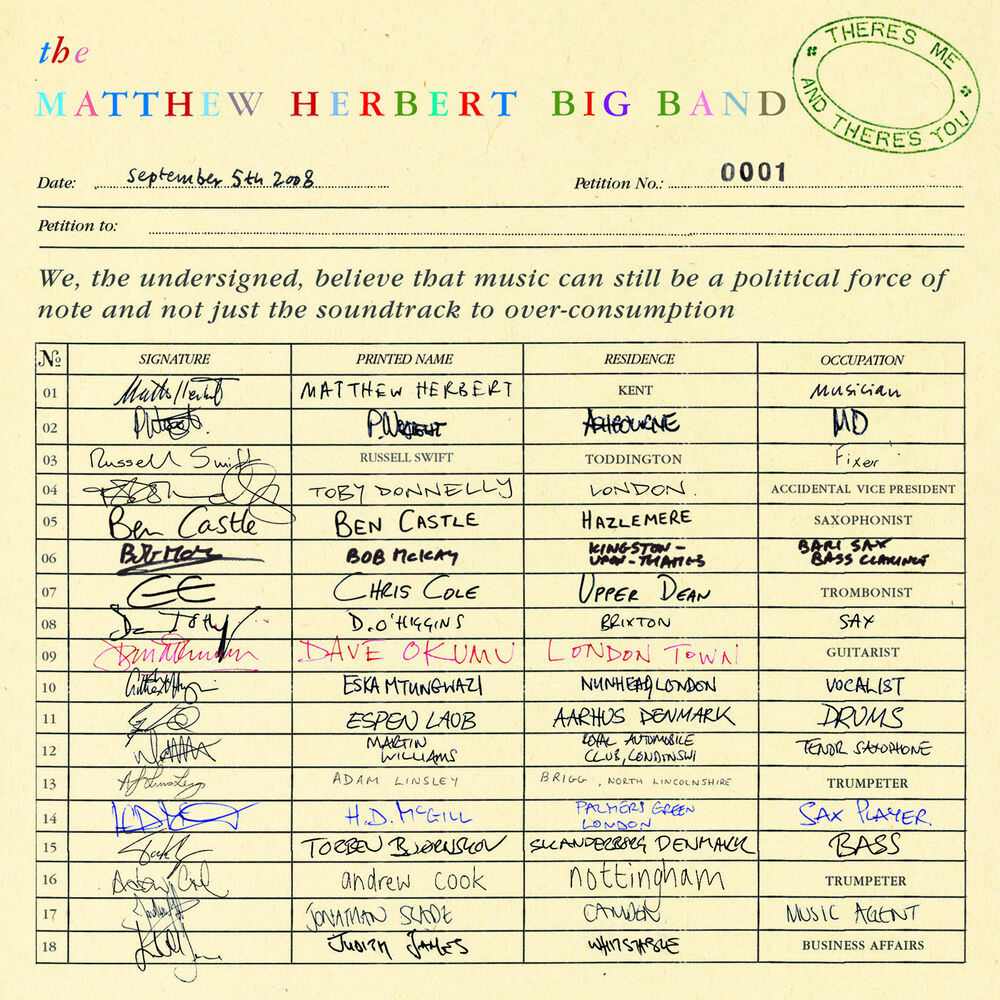 the
MATTHEW HERBERT BIG BAND
THERE'S ME
AND THERE'S YOU
Date: September 5th 2008
Petition No.: 0001
Petition to:
We, the undersigned, believe that music can still be a political force of
note and not just the soundtrack to over-consumption
№ SIGNATURE PRINTED NAME RESIDENCE OCCUPATION
01 MATTHEW HERBERT KENT Musician
02 P.WRIGHT ASHBOURNE MD
03 Russell Swift RUSSELL SWIFT TODDINGTON Fixer
04 TOBY DONNELLY LONDON. ACCIDENTAL VICE PRESIDENT
05 Ben Castle BEN CASTLE HAZLEMERE SAXOPHONIST
06 BOB McKAY KINGSTON-
UPON-THAMES BARI SAX
BASS CLARINET
07 CHRIS COLE UPPER DEAN TROMBONIST
08 D.O'HIGGINS BRIXTON SAX
09 DAVE OKUMU LONDON TOWN GUITARIST
10 ESKA MTUNGWAZI NUNHEAD, LONDON VOCALIST
11 ESPEN LAUB AARHUS DENMARK DRUMS
12 MARTIN
WILLIAMS ROYAL AUTOMOBILE
CLUB, LONDON SW1 TENOR SAXOPHONE
13 ADAM LINSLEY BRIGG, NORTH LINCOLNSHIRE TRUMPETER
14 H.D. McGILL PALMERS GREEN
LONDON SAX PLAYER.
15 TORBEN BJØRNSKOV SKANDERBORG DENMARK BASS
16 andrew cook nottingham TRUMPETER
17 JONATHAN SLADE CAMDEN. MUSIC AGENT
18 JUDITH JAMES WHITSTABLE BUSINESS AFFAIRS